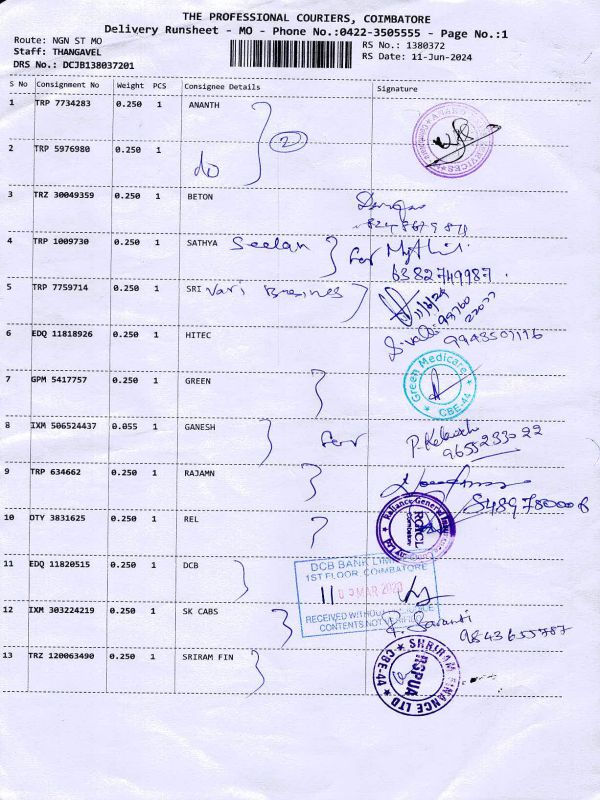 THE PROFESSIONAL COURIERS, COIMBATORE
Delivery Runsheet - MO - Phone No.:0422-3505555 - Page No.:1
Route: NGN ST MO
Staff: THANGAVEL
DRS No.: DCJB138037201
RS No.: 1380372
RS Date: 11-Jun-2024
S No Consignment No Weight PCS Consignee Details Signature
1 TRP 7734283 0.250 1 ANANTH
2
2 TRP 5976980 0.250 1
do
3 TRZ 30049359 0.250 1 BETON
4 TRP 1009730 0.250 1 SATHYA Seelan for
6382749987.
5 TRP 7759714 0.250 1 SRI Vari
11/6/24
6 EDQ 11818926 0.250 1 HITEC 9943501116
7 GPM 5417757 0.250 1 GREEN
Green Medicare
CBE-44
8 IXM 506524437 0.055 1 GANESH for
9655233022
9 TRP 634662 0.250 1 RAJAMN
10 DTY 3831625 0.250 1 REL
Reliance General
RGICL
11 EDQ 11820515 0.250 1 DCB
DCB BANK
1ST FLOOR, COIMBATORE
11 MAR 2020
RECEIVED WITHOUT
CONTENTS NOT
12 IXM 303224219 0.250 1 SK CABS
9843655787
13 TRZ 120063490 0.250 1 SRIRAM FIN
SHRIRAM FINANCE LTD
CBE-44
RSPUA